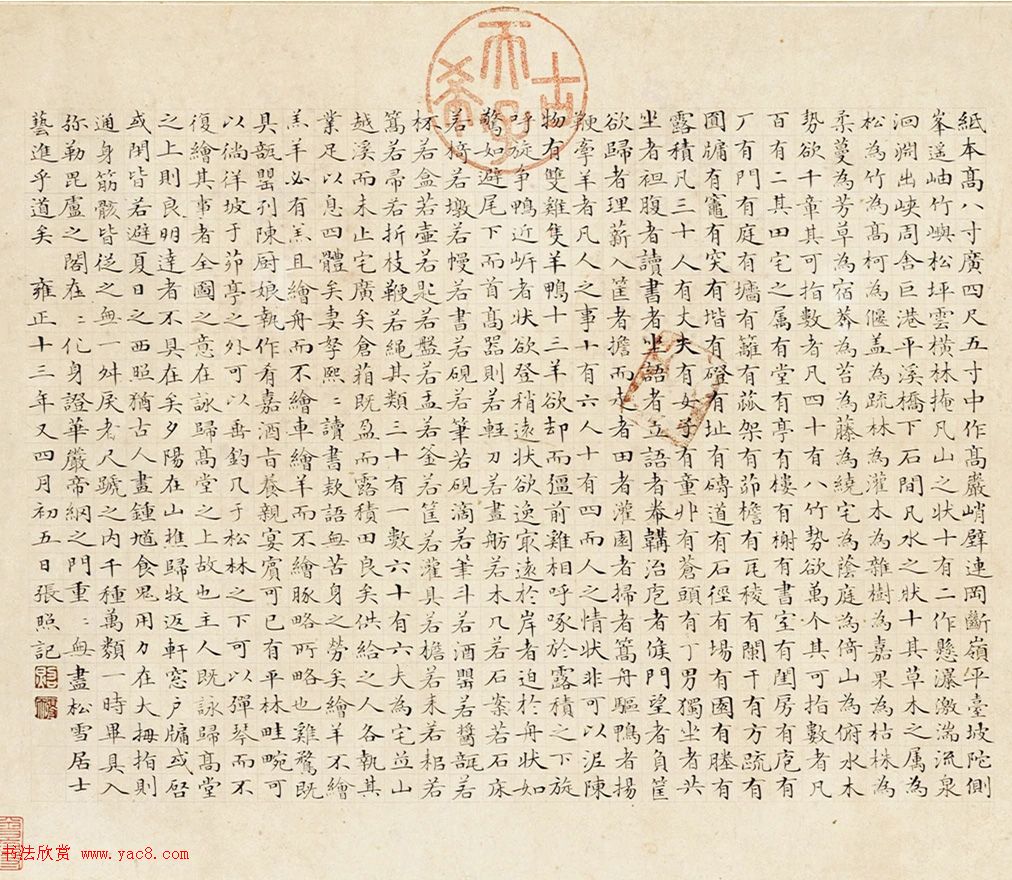 紙本高八寸廣四尺五寸中作高巖峭壁連岡斷嶺平臺坡陀側
峯遥岫竹嶼松坪雲橫林掩凡山之狀十有二作懸瀑激湍流泉
洄淵出峽周舍巨港平溪橋下石間凡水之狀十其草木之属為
松為竹為高柯為偃盖為疏林為灌木為雜樹為嘉果為枯株為
柔蔓為芳草為宿莽為苔為藤為繞宅為蔭庭為倚山為俯水木
勢欲千章其可指數者凡四十有八竹勢欲萬个其可指數者凡
百有二其田宅之属有堂有亭有樓有榭有書室有閨房有庖有
厂有門有庭有墻有籬有蓏架有茆檐有瓦稜有闌干有方疏有
圓牖有竈有突有堦有磴有址有磚道有石徑有場有園有塍有
露積凡三十人有丈夫有女子有童丱有蒼頭有丁男獨坐者共
坐者袒腹者讀書者坐語者立語者韝治庖者候門望者負筐
欲歸者理薪入筐者擔而者田者灌園者掃者篙舟驅鴨者揚
鞭牽羊者凡人之事十有六人十有四而人之情狀非可以泥陳
物有雙雞隻羊鴨十三羊欲却而彊前雞相呼啄於露積之下旋
呼旋爭鴨近岍者狀欲登稍遠狀欲逸冣遠於岸者迫於舟狀如
驚如避尾下而首高器則若輕刀若畫舫若木几若石案若石床
若椅若墩若幔若書若硯若筆若硯滴若筆斗若酒罌若醬瓿若
杯若盒若壷若匙若盤若盂若釜若筐若灌具若檐若耒若耜若
篙若帚若折枝鞭若繩其類三十有一數六十有六夫為宅並山
越溪而未止宅廣矣倉箱既盈而露積田良矣供給之人各執其
業足以息四體矣妻孥熙：讀書欵語無苦身之勞矣繪羊不繪
羔羊必有羔且繪舟而不繪車繪羊而不繪豚略所略也雞鶩既
具瓿罌列陳厨娘執作肴嘉酒旨養親宴賓可已有平林畦畹可
以徜徉坡于茆亭之外可以垂釣几于松林之下可以彈琴而不
復繪其事者全圖之意在詠歸高堂之上故也主人既詠歸高堂
之上則良明達者不具在矣夕陽在山樵歸牧返軒窓戶牖或啓
或閉皆若避夏日之西照猶古人畫鍾馗食鬼用力在大拇指則
通身筋骸皆従之無一舛戾者尺蹏之内千種萬類一時畢具入
弥勒毘盧之閣在：化身證華嚴帝網之門重：無盡松雪居士
藝進乎道矣 雍正十三年又四月初五日張照記
古希天子
书法欣赏 www.yac8.com